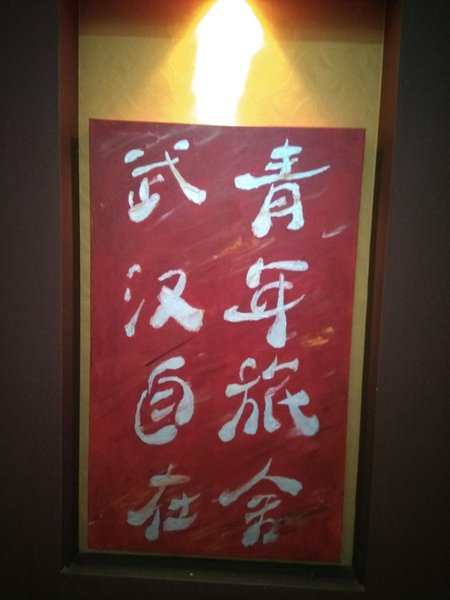 武汉自在
青年旅舍